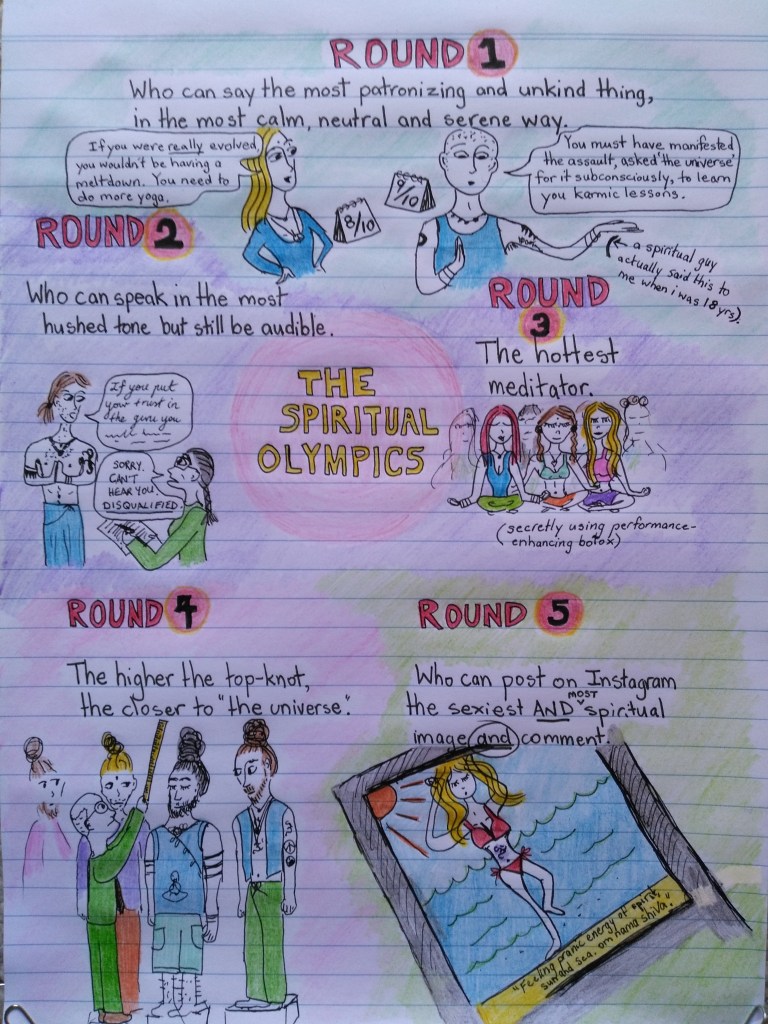 ROUND 1
Who can say the most patronizing and unkind thing,
in the most calm, neutral and serene way.
If you were really evolved
you wouldn't be having a
meltdown. You need to
do more yoga.
8/10
9/10
You must have manifested
the assault, asked 'the universe'
for it subconsciously, to learn
you karmic lessons.
← a spiritual guy
actually said this to
me when i was 18 yrs).
ROUND 2
Who can speak in the most
hushed tone but still be audible.
If you put
your trust in
the guru you
SORRY.
CAN'T
HEAR YOU.
DISQUALIFIED.
THE
SPIRITUAL
OLYMPICS
ROUND
3
The hottest
meditator.
(secretly using performance-
enhancing botox)
ROUND 4
The higher the top-knot,
the closer to "the universe".
ROUND 5
Who can post on Instagram
the sexiest AND MOST spiritual
image and comment.
"Feeling pranic energy of spirit,
sun and sea. om nama shiva."